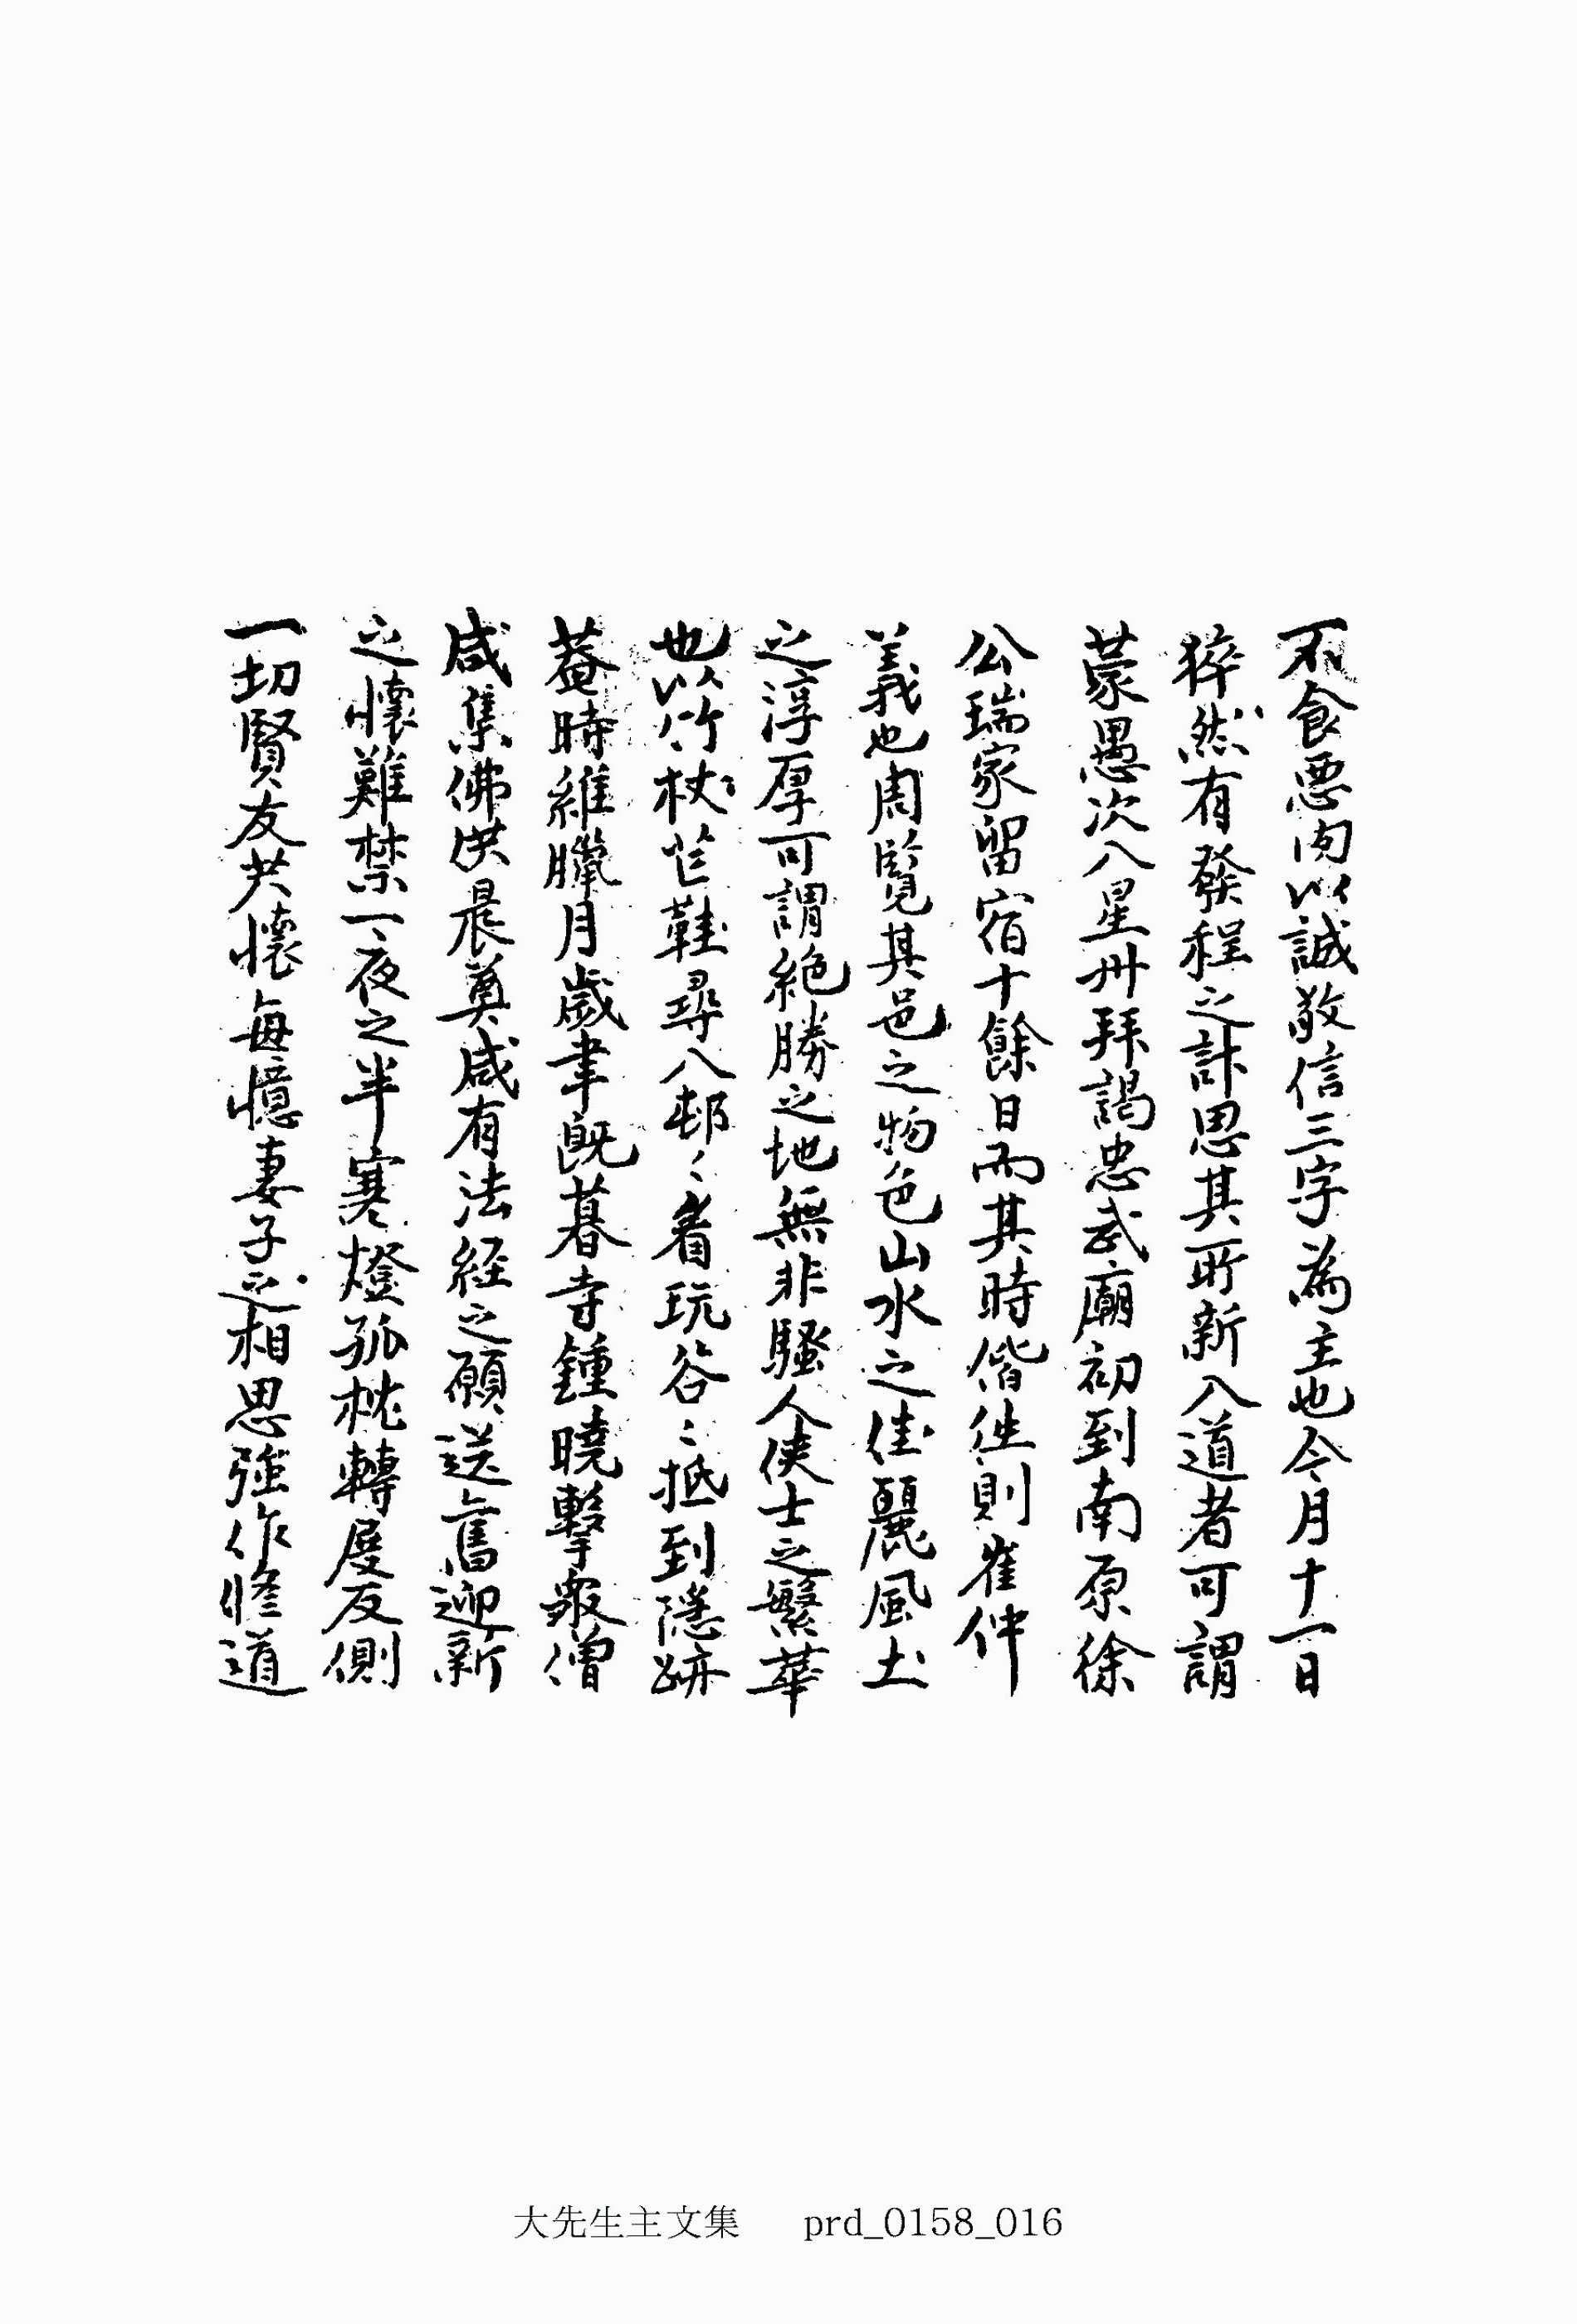 不食惡肉以誠敬信三字爲主也今月十一日
猝然有發程之計思其所新入道者可謂
蒙愚次入星州拜謁忠武廟初到南原徐
公瑞家留宿十餘日而其時偕徃則崔仲
義也周覽其邑之物色山水之佳麗風土
之淳厚可謂絶勝之地無非騷人俠士之繁華
也以竹杖芒鞋尋入邨〻看玩谷〻抵到隱跡
菴時維臘月歲聿旣暮寺鍾曉擊衆僧
咸集佛供晨奠咸有法経之願送舊迎新
之懷難禁一夜之半寒燈孤枕轉展反側
一切賢友共懷每憶妻子之相思强作修道
大先生主文集 prd_0158_016